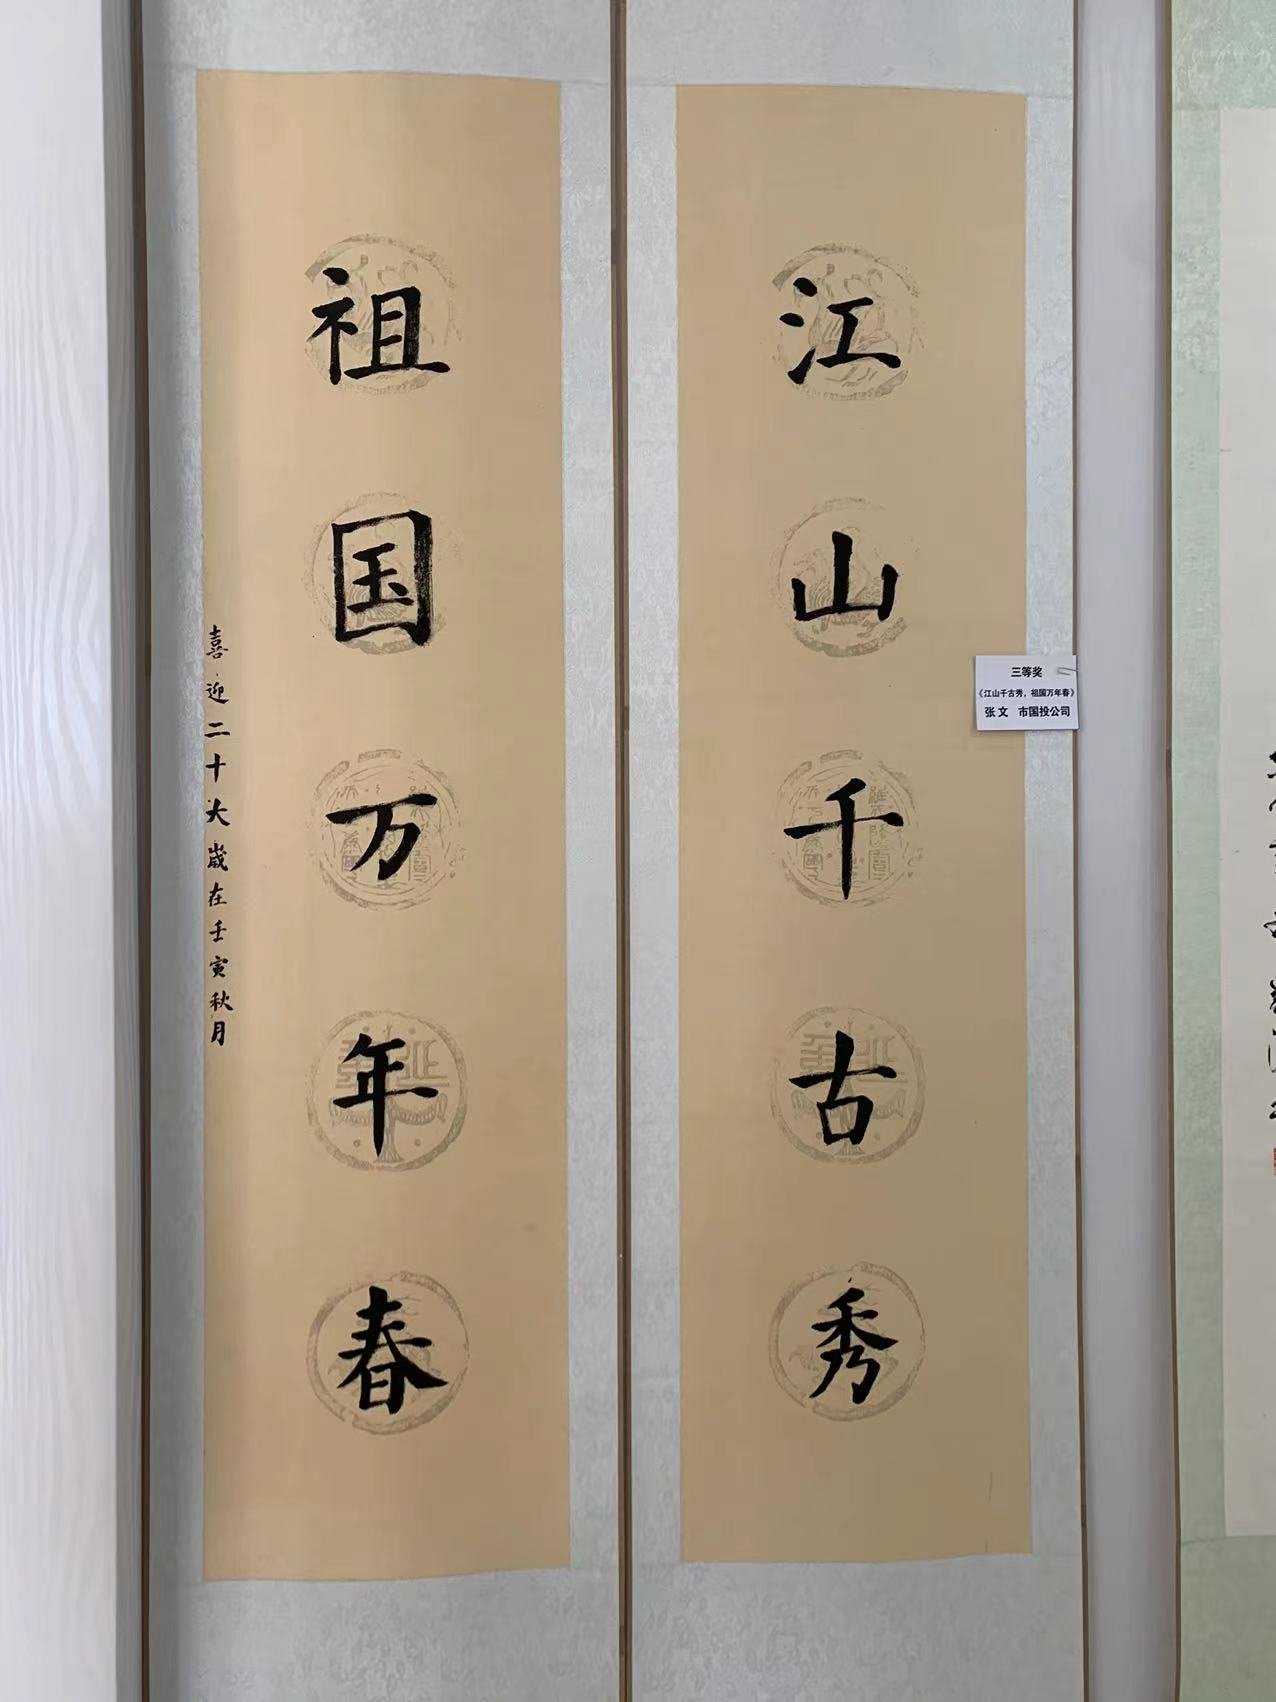 江山千古秀
祖国万年春
喜迎二十大歲在壬寅秋月
三等奖
《江山千古秀，祖国万年春》
张文 市国投公司